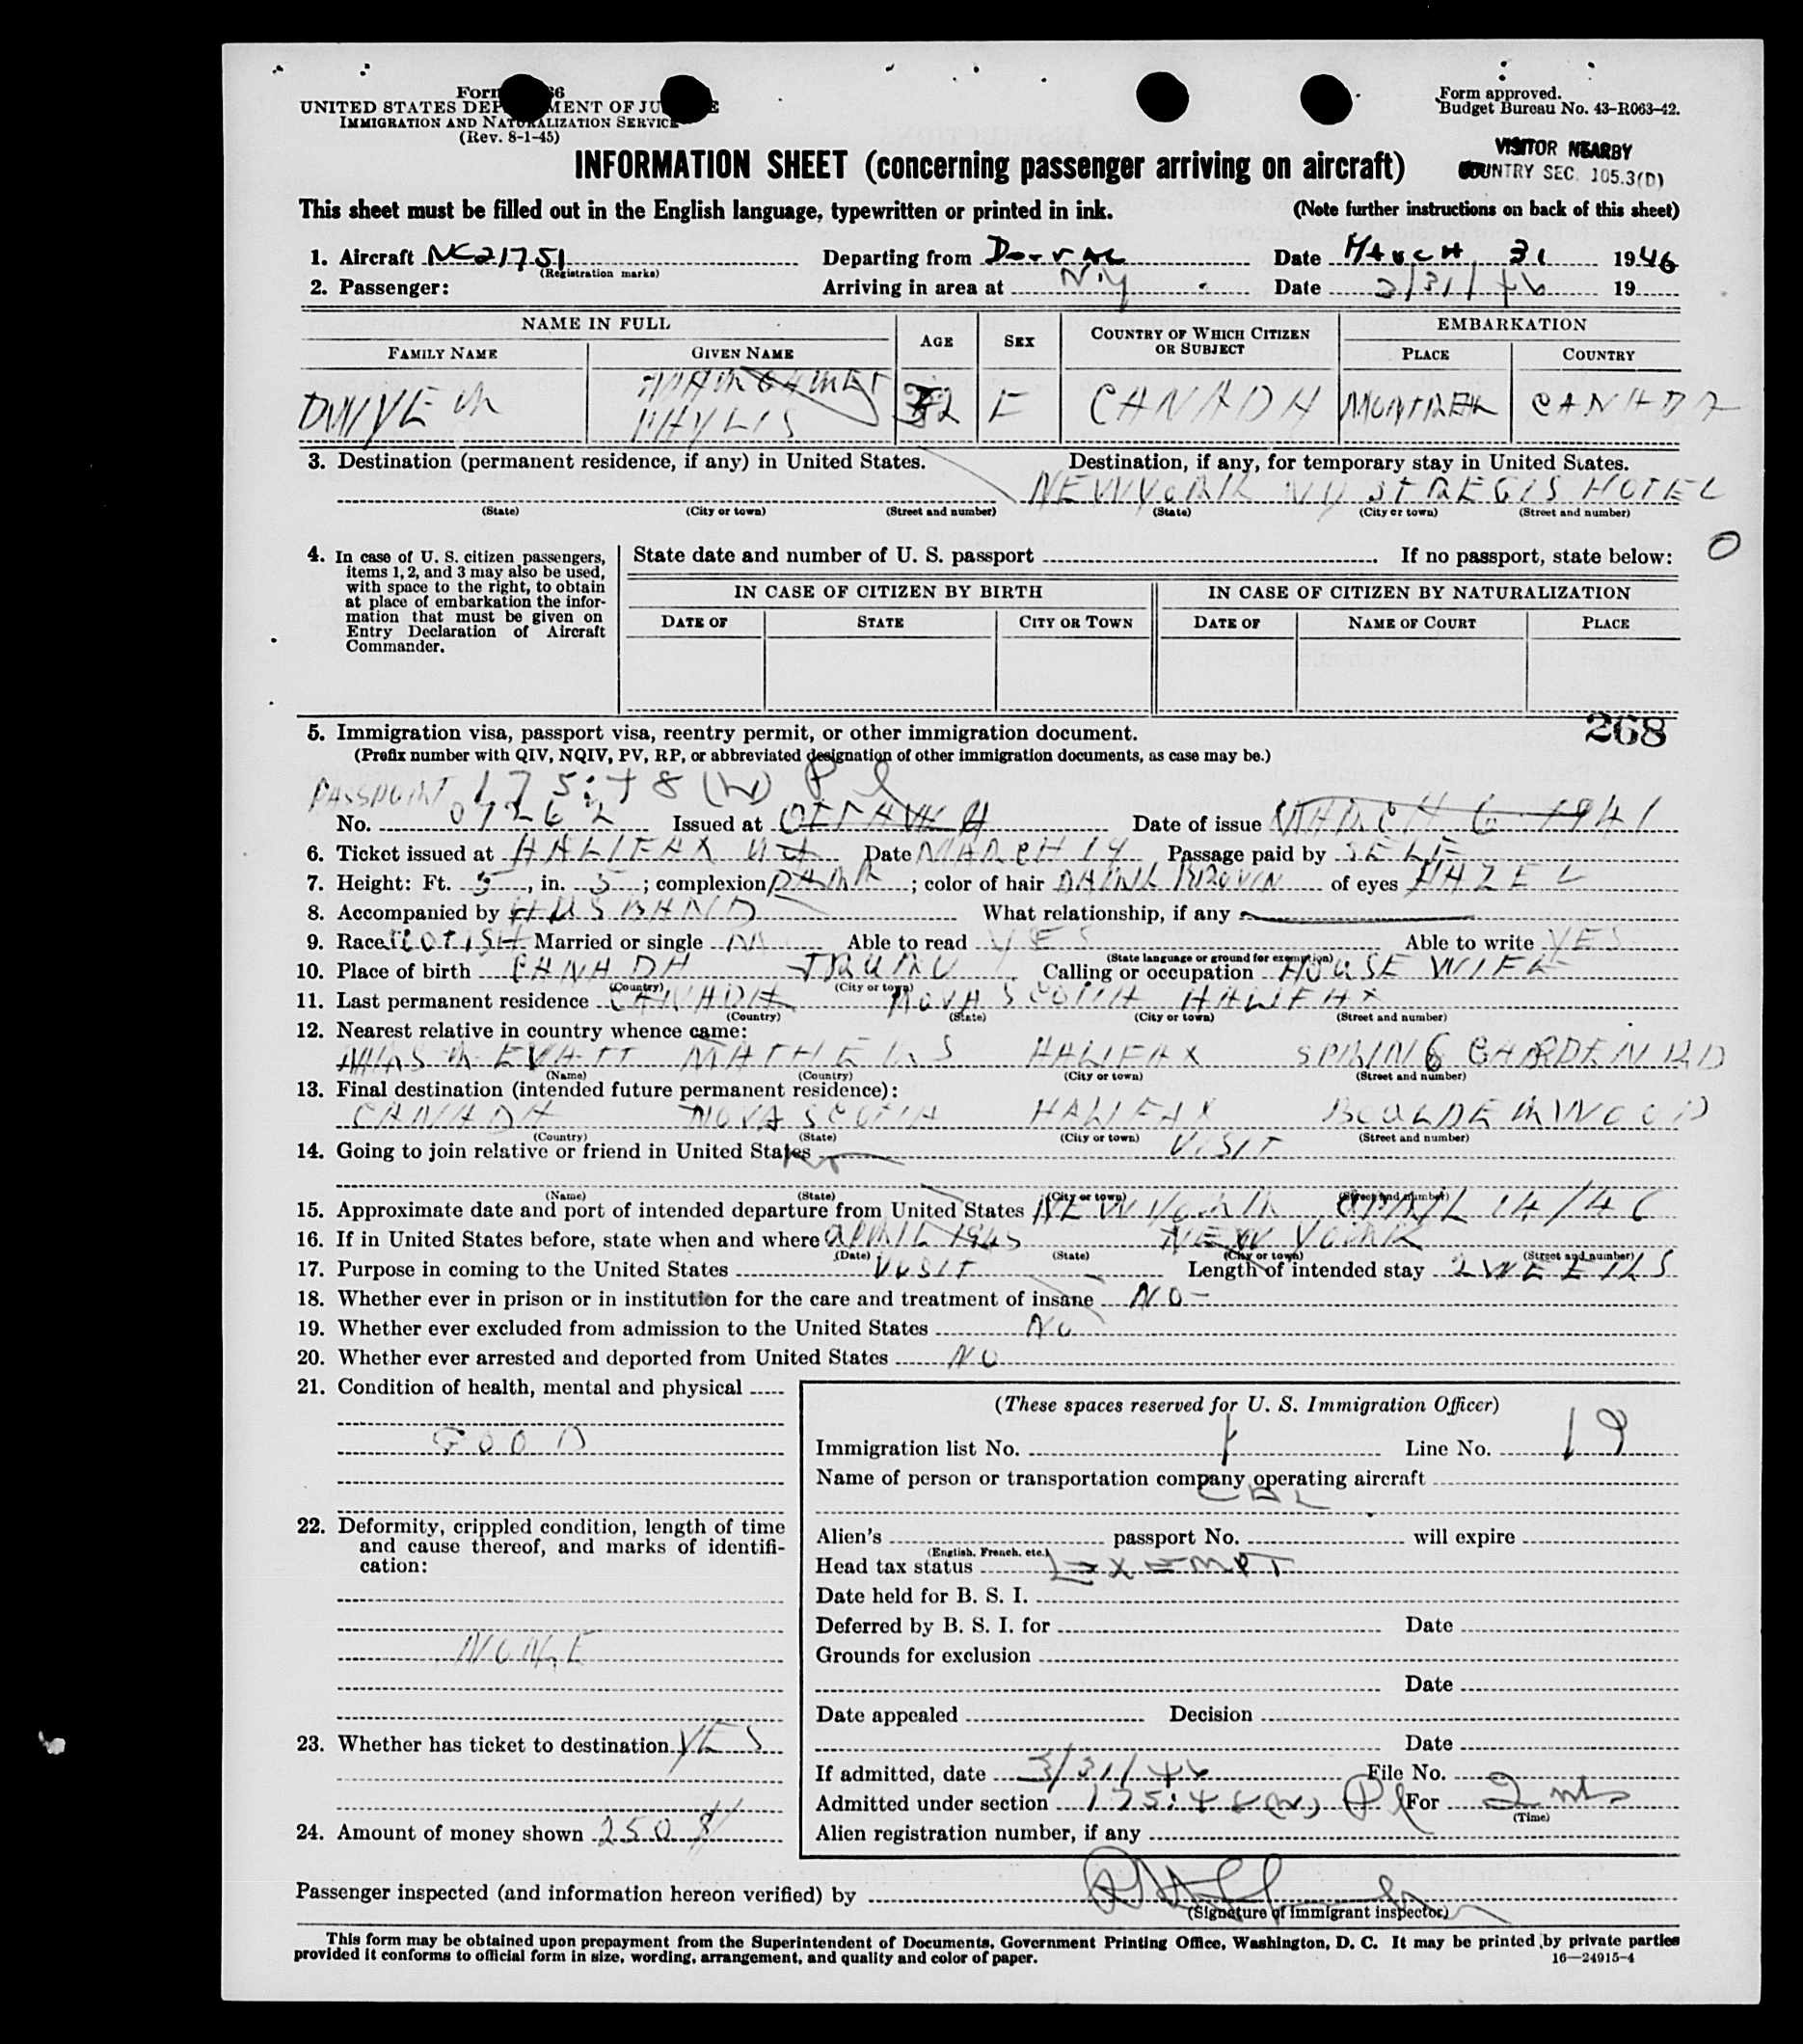 Form 66
UNITED STATES DEPARTMENT OF JUSTICE
IMMIGRATION AND NATURALIZATION SERVICE
(Rev. 8-1-45)
Form approved.
Budget Bureau No. 43-R063-42.
VISITOR NEARBY
COUNTRY SEC. 105.3(D)
INFORMATION SHEET (concerning passenger arriving on aircraft)
This sheet must be filled out in the English language, typewritten or printed in ink. (Note further instructions on back of this sheet)
1. Aircraft NC21751 Departing from Dorval Date MARCH 31 1946
(Registration marks)
2. Passenger: Arriving in area at N.Y. Date 3/31/46 19
NAME IN FULL AGE SEX COUNTRY OF WHICH CITIZEN OR SUBJECT EMBARKATION
FAMILY NAME GIVEN NAME PLACE COUNTRY
PHYLIS 32 F CANADA MONTREAL CANADA
3. Destination (permanent residence, if any) in United States. Destination, if any, for temporary stay in United States.
NEW YORK NY ST REGIS HOTEL
(State) (City or town) (Street and number) (State) (City or town) (Street and number)
4. In case of U. S. citizen passengers, items 1, 2, and 3 may also be used, with space to the right, to obtain at place of embarkation the information that must be given on Entry Declaration of Aircraft Commander.
State date and number of U. S. passport If no passport, state below: O
IN CASE OF CITIZEN BY BIRTH IN CASE OF CITIZEN BY NATURALIZATION
DATE OF STATE CITY OR TOWN DATE OF NAME OF COURT PLACE
268
5. Immigration visa, passport visa, reentry permit, or other immigration document.
(Prefix number with QIV, NQIV, PV, RP, or abbreviated designation of other immigration documents, as case may be.)
PASSPORT 175:48 (W) Pl
No. 07262 Issued at OTTAWA Date of issue MARCH 6 1941
6. Ticket issued at HALIFAX NS Date MARCH 19 Passage paid by SELF
7. Height: Ft. 5, in. 5; complexion DARK; color of hair DARK BROWN of eyes HAZEL
8. Accompanied by HUSBAND What relationship, if any
9. Race SCOTISH Married or single M Able to read YES Able to write YES
(State language or ground for exemption)
10. Place of birth CANADA TRURO Calling or occupation HOUSE WIFE
(Country) (City or town)
11. Last permanent residence CANADA NOVA SCOTIA HALIFAX
(Country) (State) (City or town) (Street and number)
12. Nearest relative in country whence came:
EVATT MATHERS HALIFAX SPRING GARDEN RD
(Name) (Country) (City or town) (Street and number)
13. Final destination (intended future permanent residence):
CANADA NOVA SCOTIA HALIFAX BOULDERWOOD
(Country) (State) (City or town) (Street and number)
14. Going to join relative or friend in United States No VISIT
(Name) (State) (City or town) (Street and number)
15. Approximate date and port of intended departure from United States NEW YORK APRIL 14/46
16. If in United States before, state when and where APRIL 1945 NEW YORK
(Date) (State) (City or town) (Street and number)
17. Purpose in coming to the United States VISIT Length of intended stay 2 WEEKS
18. Whether ever in prison or in institution for the care and treatment of insane NO
19. Whether ever excluded from admission to the United States NO
20. Whether ever arrested and deported from United States NO
21. Condition of health, mental and physical
GOOD
22. Deformity, crippled condition, length of time and cause thereof, and marks of identification:
NONE
23. Whether has ticket to destination YES
24. Amount of money shown 250 $
(These spaces reserved for U. S. Immigration Officer)
Immigration list No. 1 Line No. 19
Name of person or transportation company operating aircraft
Alien's passport No. will expire
(English, French, etc.)
Head tax status EXEMPT
Date held for B. S. I.
Deferred by B. S. I. for Date
Grounds for exclusion
Date
Date appealed Decision
Date
If admitted, date 3/31/46 File No.
Admitted under section 175:48(W) Pl For 2 mts
(Time)
Alien registration number, if any
Passenger inspected (and information hereon verified) by
(Signature of immigrant inspector)
This form may be obtained upon prepayment from the Superintendent of Documents, Government Printing Office, Washington, D. C. It may be printed by private parties
provided it conforms to official form in size, wording, arrangement, and quality and color of paper. 16—24915-4